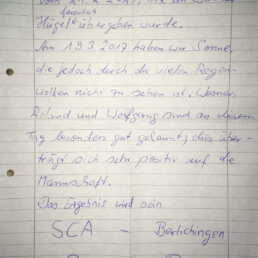 Hügel übergeben wurde.
Am 19.3.2017 haben wir Sonne,
die jedoch durch die vielen Regen-
wolken nicht zu sehen ist. Werner,
Roland und Wolfgang sind an diesem
Tag besonders gut gelaunt; dies über-
trägt sich sehr positiv auf die
Mannschaft.
Das Ergebnis wird sein
SCA - Berlichingen